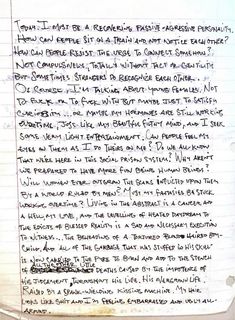 TODAY: I MUST BE A RECOVERING PASSIVE-AGGRESSIVE PERSONALITY.
HOW CAN PEOPLE SIT ON A TRAIN AND NOT NOTICE EACH OTHER?
HOW CAN PEOPLE RESIST THE URGE TO CONNECT SOMEHOW?
NOT COMPULSIVELY, TOTALLY WITHOUT TACT OR GENTILITY
BUT SOMETIMES STRANGERS DO RECOGNIZE EACH OTHER.
OF COURSE, I'M TALKING ABOUT YOUNG FEMALES. NOT
TO FUCK OR TO FUCK WITH BUT MAYBE JUST TO SATISFY
CURIOSITY... OR MAYBE MY HORMONES ARE STILL WORKING
OVERTIME. JUST LIKE MY BEAUTIFUL FILTHY MIND, AND I SEEK
SOME VERY LIGHT ENTERTAINMENT. CAN PEOPLE FEEL MY
EYES ON THEM AS I DO THEIRS ON ME? DO WE ALL KNOW
THAT WE'RE HERE IN THIS SOCIAL PRISON SYSTEM? WHY AREN'T
WE PREPARED TO HAVE MORE FUN BEING HUMAN BEINGS?
WILL WOMEN EVER OVERCOME THE SCARS INFLICTED UPON THEM
BY A WORLD RULED BY MEN? MUST MY FANTASIES BE STUCK
WORKING OVERTIME? LIVING IN THE ABSTRACT IS A CANCER AND
A HELL, MY LOVE, AND THE SHOVELLING OF HEATED DAYDREAMS TO
THE EDICTS OF BLESSED REALITY IS A SAD AND NECESSARY EXECUTION
TO WITNESS... THE BEHAVIORS OF A TORTURED BRAIN HAUNTED BY
AND ALL OF THE GARBAGE THAT WAS STUFFED IN HIS SKULL
IS NOW CARRIED TO THE PYRE TO BURN AND ADD TO THE STENCH
OF ALTOGETHER LITTLE DEATHS CAUSED BY THE IMPOTENCE OF
HIS JUDGEMENT THROUGHOUT HIS LIFE, HIS OVERGROWN LIFE,
BY A SPARK-WELDING KISSING MACHINE. MY HAIR
LOOKS LIKE SHIT AND I'M FEELING EMBARRASSED AND UGLY ALL-
AROUND.